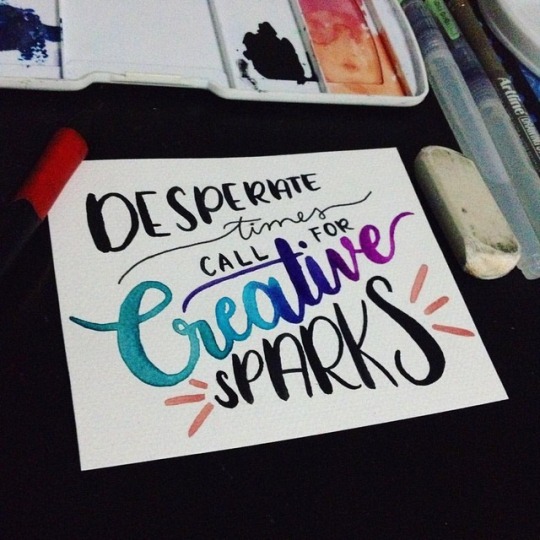 DESPERATE
times
CALL FOR
Creative
SPARKS
Artline